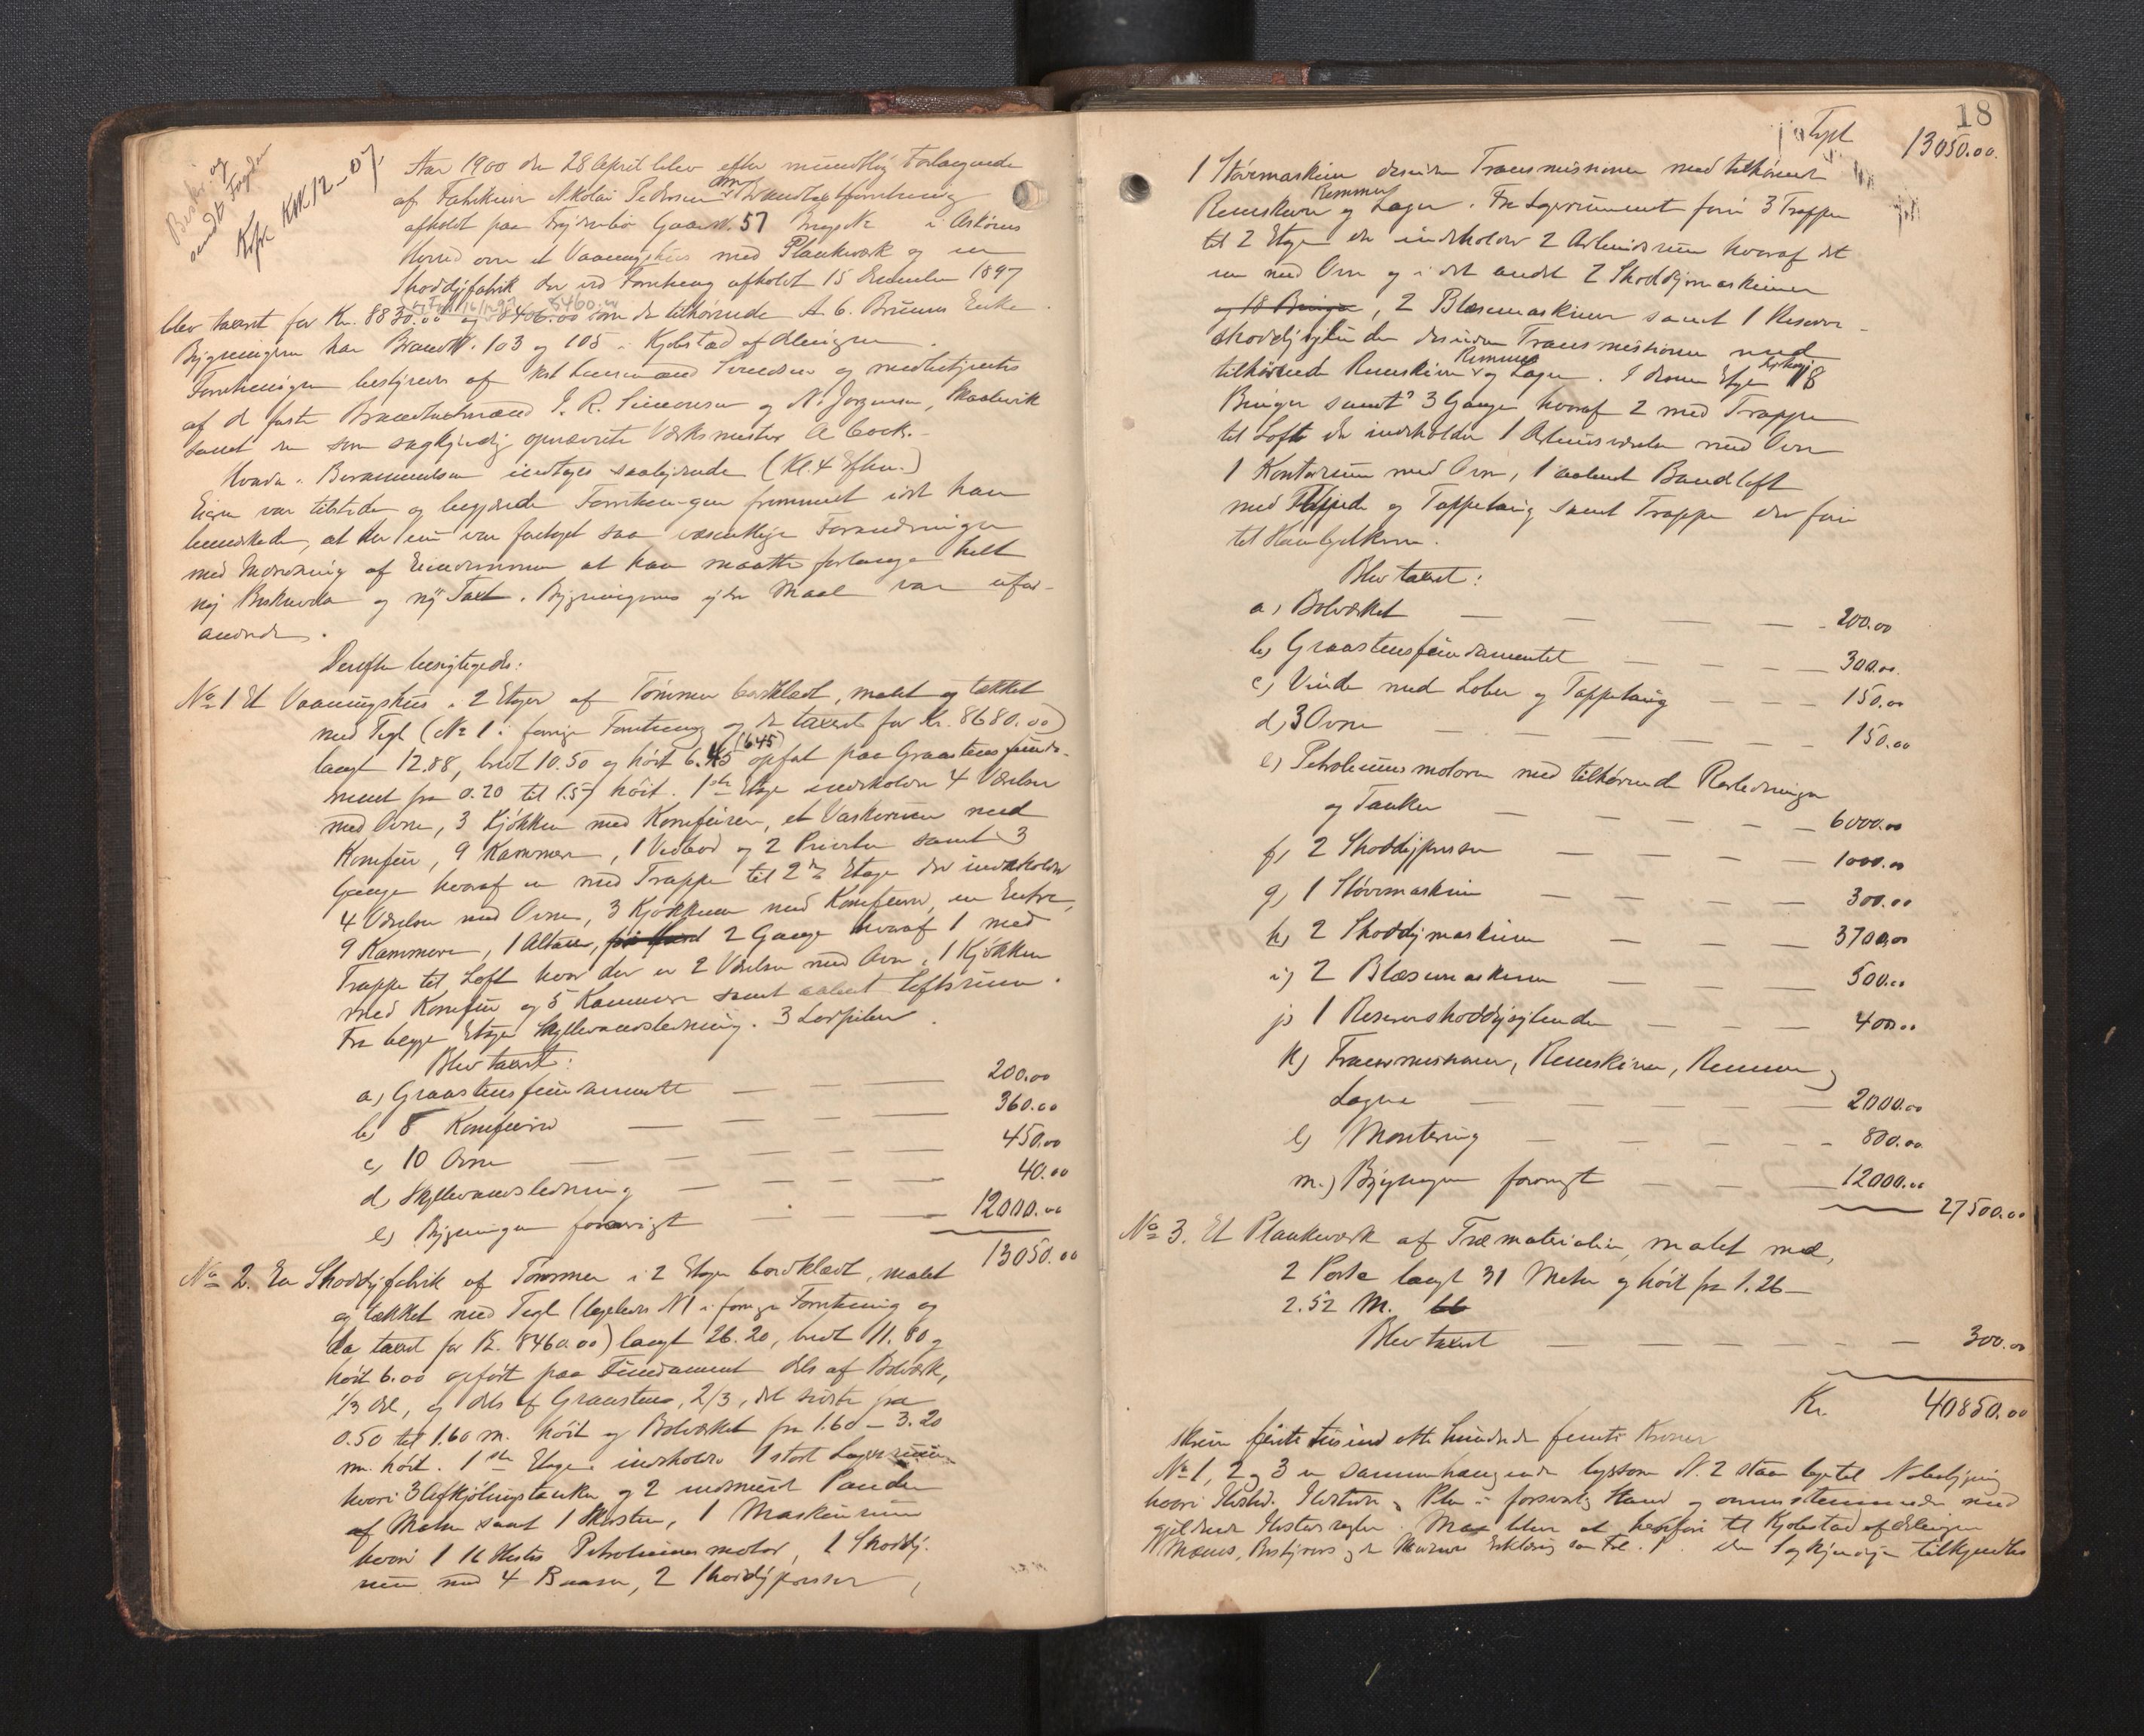 Beskr. og
sendt Fogden
Kofr. KM 12-07.
Aar 1900 den 28 April blev efter mundtlig Forlangende
af Fabrikeier Nikolai Pedersen Brandtaxtforretning
afholdt paa Gaards N. 57 Brugs No i Askøens
Herred over et Vaaningshus med Plankeværk og en
Shoddyfabrik der ved Forretning afholdt 15 December 1897
blev taxeret for Kr. 8830.00 og 8460.00 som da tilhørende A. C. Bruuns Enke
Bygningerne har Brand N. 103 og 105 i Kjøbstad afdelingen.
Forretningen bestyres af Lensmand og medbetjentes
af de faste Brandtaxtmænd J. R. Simonsen og N. Jørgensen, Skaalevik
samt den som sagkyndig opnævnte Værksmester A Cock.
Hvorda. Berammelsen indtoges saalydende (Kl. 4 Efm.)
Eieren var tilstede og begjærede Forretningen fremmet idet han
bemærkede, at der nu var foretaget saa væsentlige Forandringer
med Indredning af Eiendommen at han maatte forlange helt
ny Beskrivelse og ny Taxt. Bygningernes ydre Maal var ufor-
andrede.
Derefter besigtigedes:
No 1 Et Vaaningshus i 2 Etager af Tømmer bordklædt, malet og tækket
med Tegl (No 1 i forrige Forretning og da taxeret for Kr. 8680.00)
langt 12.88, bredt 10.50 og høit 6.45 (645) opført paa Graastens funda-
ment fra 0.20 til 1.57 høit. 1ste Etage indeholder 4 Værelser
med Ovne, 3 Kjøkken med Komfurer, et Vaskerum med
Komfur, 9 Kammere, 1 Vedbod og 2 Priveter samt 3
Gange hvoraf en med Trappe til 2den Etage der indeholder
4 Værelser med Ovne, 3 Kjøkkener med Komfurer, en Entre,
9 Kammere, 1 Altan, 2 Gange hvoraf 1 med
Trappe til Loft hvor der er 2 Værelser med Ovn, 1 Kjøkken
med Komfur og 5 Kammere samt aabent Loftsrum.
Fra begge Etager Skyllevandsledning. 3 Lodpiber.
Blev taxeret:
a) Graastensfundamentet — 200.00
b) 8 Komfurer — 360.00
c) 10 Ovne — 450.00
d) Skyllevandsledning — 40.00
e) Bygningen forøvrigt — 12000.00
13050.00
No 2. En Shoddyfabrik af Tømmer i 2 Etager bordklædt, malet
og tækket med Tegl (ligeledes N 1 i forrige Forretning og
da taxeret for Kr. 8460.00) langt 26.20, bredt 11.80 og
høit 6.00 opført paa Fundament dels af Bolværk,
1/3 del, og dels af Graasten, 2/3, det sidste fra
0.50 til 1.60 m. høit og Bolværket fra 1.60 – 3.20
m. høit. 1ste Etage indeholder 1 stort Lagerrum
hvori 3 Afkjølingstanker og 2 indmuret Pander
af Metal samt 1 Skorsten, 1 Maskinrum
hvori 1 16 Hestes Petroleumsmotor, 1 Shoddy-
rum med 4 Baaser, 2 Shoddypresser,
18
Tept 13050.00.
1 Støvmaskine desuden Transmissioner med tilhørende
Remskiver Remmer og Lager. Fra Lagerrummet fører 3 Trapper
til 2 Etage der indeholder 2 Arbeidsrum hvoraf det
ene med Ovn og i det andet 2 Shoddymaskiner
og 18 Binger, 2 Blæsemaskiner samt 1 Reserve-
shoddycylinder desuden Transmissioner med
tilhørende Remskiver Remmer og Lager. I denne Etage 18
Binger samt 3 Gange hvoraf 2 med Trapper
til Loft der indeholder 1 Arbeidsværelse med Ovn
1 Kontorrum med Ovn, 1 aabent Bandloft
med og Tappetaug samt Trappe der fører
til Hanebjelkerne.
Blev taxeret:
a) Bolværket — 200.00
b) Graastensfundamentet — 300.00
c) Vinde med Lober og Tappetaug — 150.00
d) 3 Ovne — 150.00
e) Petroleumsmotoren med tilhørende Rørledninger
og Tanker — 6000.00
f) 2 Shoddypresser — 1000.00
g) 1 Støvmaskine — 300.00
h) 2 Shoddymaskiner — 3700.00
i) 2 Blæsemaskiner — 500.00
j) 1 Reserveshoddycylinder — 400.00
k) Transmissioner, Remskiver, Remmer og
Lagere — 2000.00
l) Montering — 800.00
m.) Bygningen forøvrigt — 12000.00
27500.00
No 3. Et Plankeværk af Træmaterialier, malet med
2 Porte langt 31 Meter og høit fra 1.26 –
2.52 M.
Blev taxeret — 300.00
Kr. 40850.00
skriver førti tusind otte hundrede femti Kroner
No 1, 2 og 3 er sammenhængende ligesom N. 2 staar lige til Nabobygning
hvori Ildsted. Ildsteder og Piber i forsvarlig Stand og overensstemmende med
gjeldende Ildstedsregler. Maa blive at henføre til Kjøbstad afdelingen
Mænds, Bestyrers og de Erklæring som Fol. 1. den Sagkyndige tilkjendtes